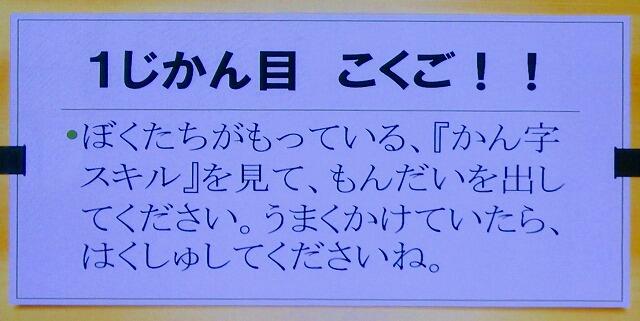 1じかん目 こくご！！
•ぼくたちがもっている、『かん字
スキル』を見て、もんだいを出し
てください。うまくかけていたら、
はくしゅしてくださいね。